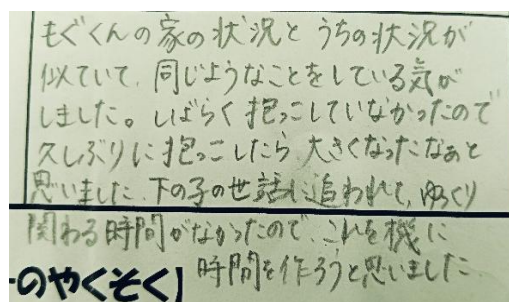 もぐくんの家の状況と うちの状況が
似ていて、同じようなことをしている気が
しました。しばらく抱っこしていなかったので
久しぶりに抱っこしたら 大きくなったなぁと
思いました。下の子の世話に追われて、ゆっくり
関わる時間がなかったので、これを機に
時間を作ろうと思いました
のやくそく】